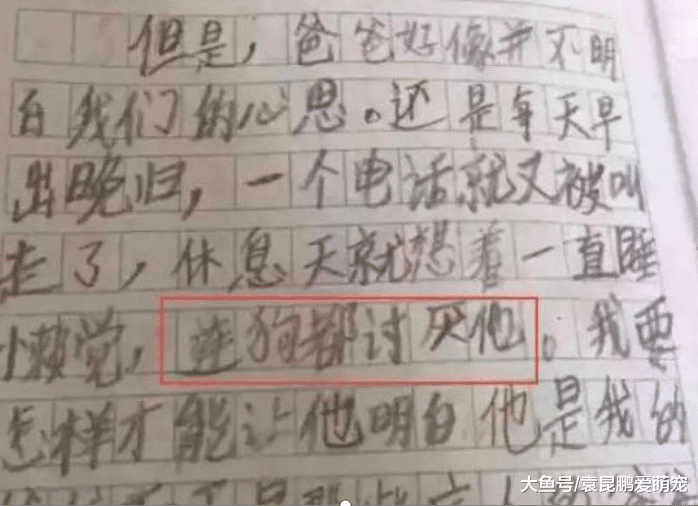 但是，爸爸好像并不明
白我们的心思。还是每天早
出晚归，一个电话就又被叫
走了，休息天就想着一直睡
懒觉，连狗都讨厌他。我要
怎样才能让他明白他是我的
大鱼号/袁昆鹏爱萌宠